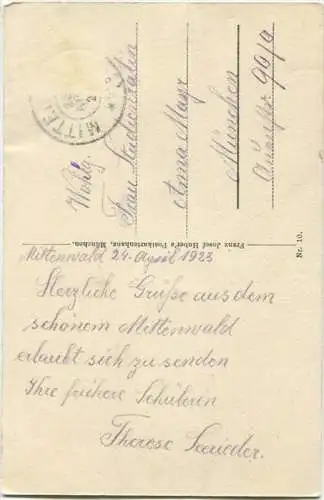 MITTE
Wohlg.
Frau Studienrätin
Anna Mayr
München
99/9
Franz Josef Huber's Postkartenhaus, München.
Nr. 10.
Mittenwald 24. April 1923
Herzliche Grüße aus dem
schönem Mittenwald
erlaubt sich zu senden
Ihre frühere Schülerin
Therese